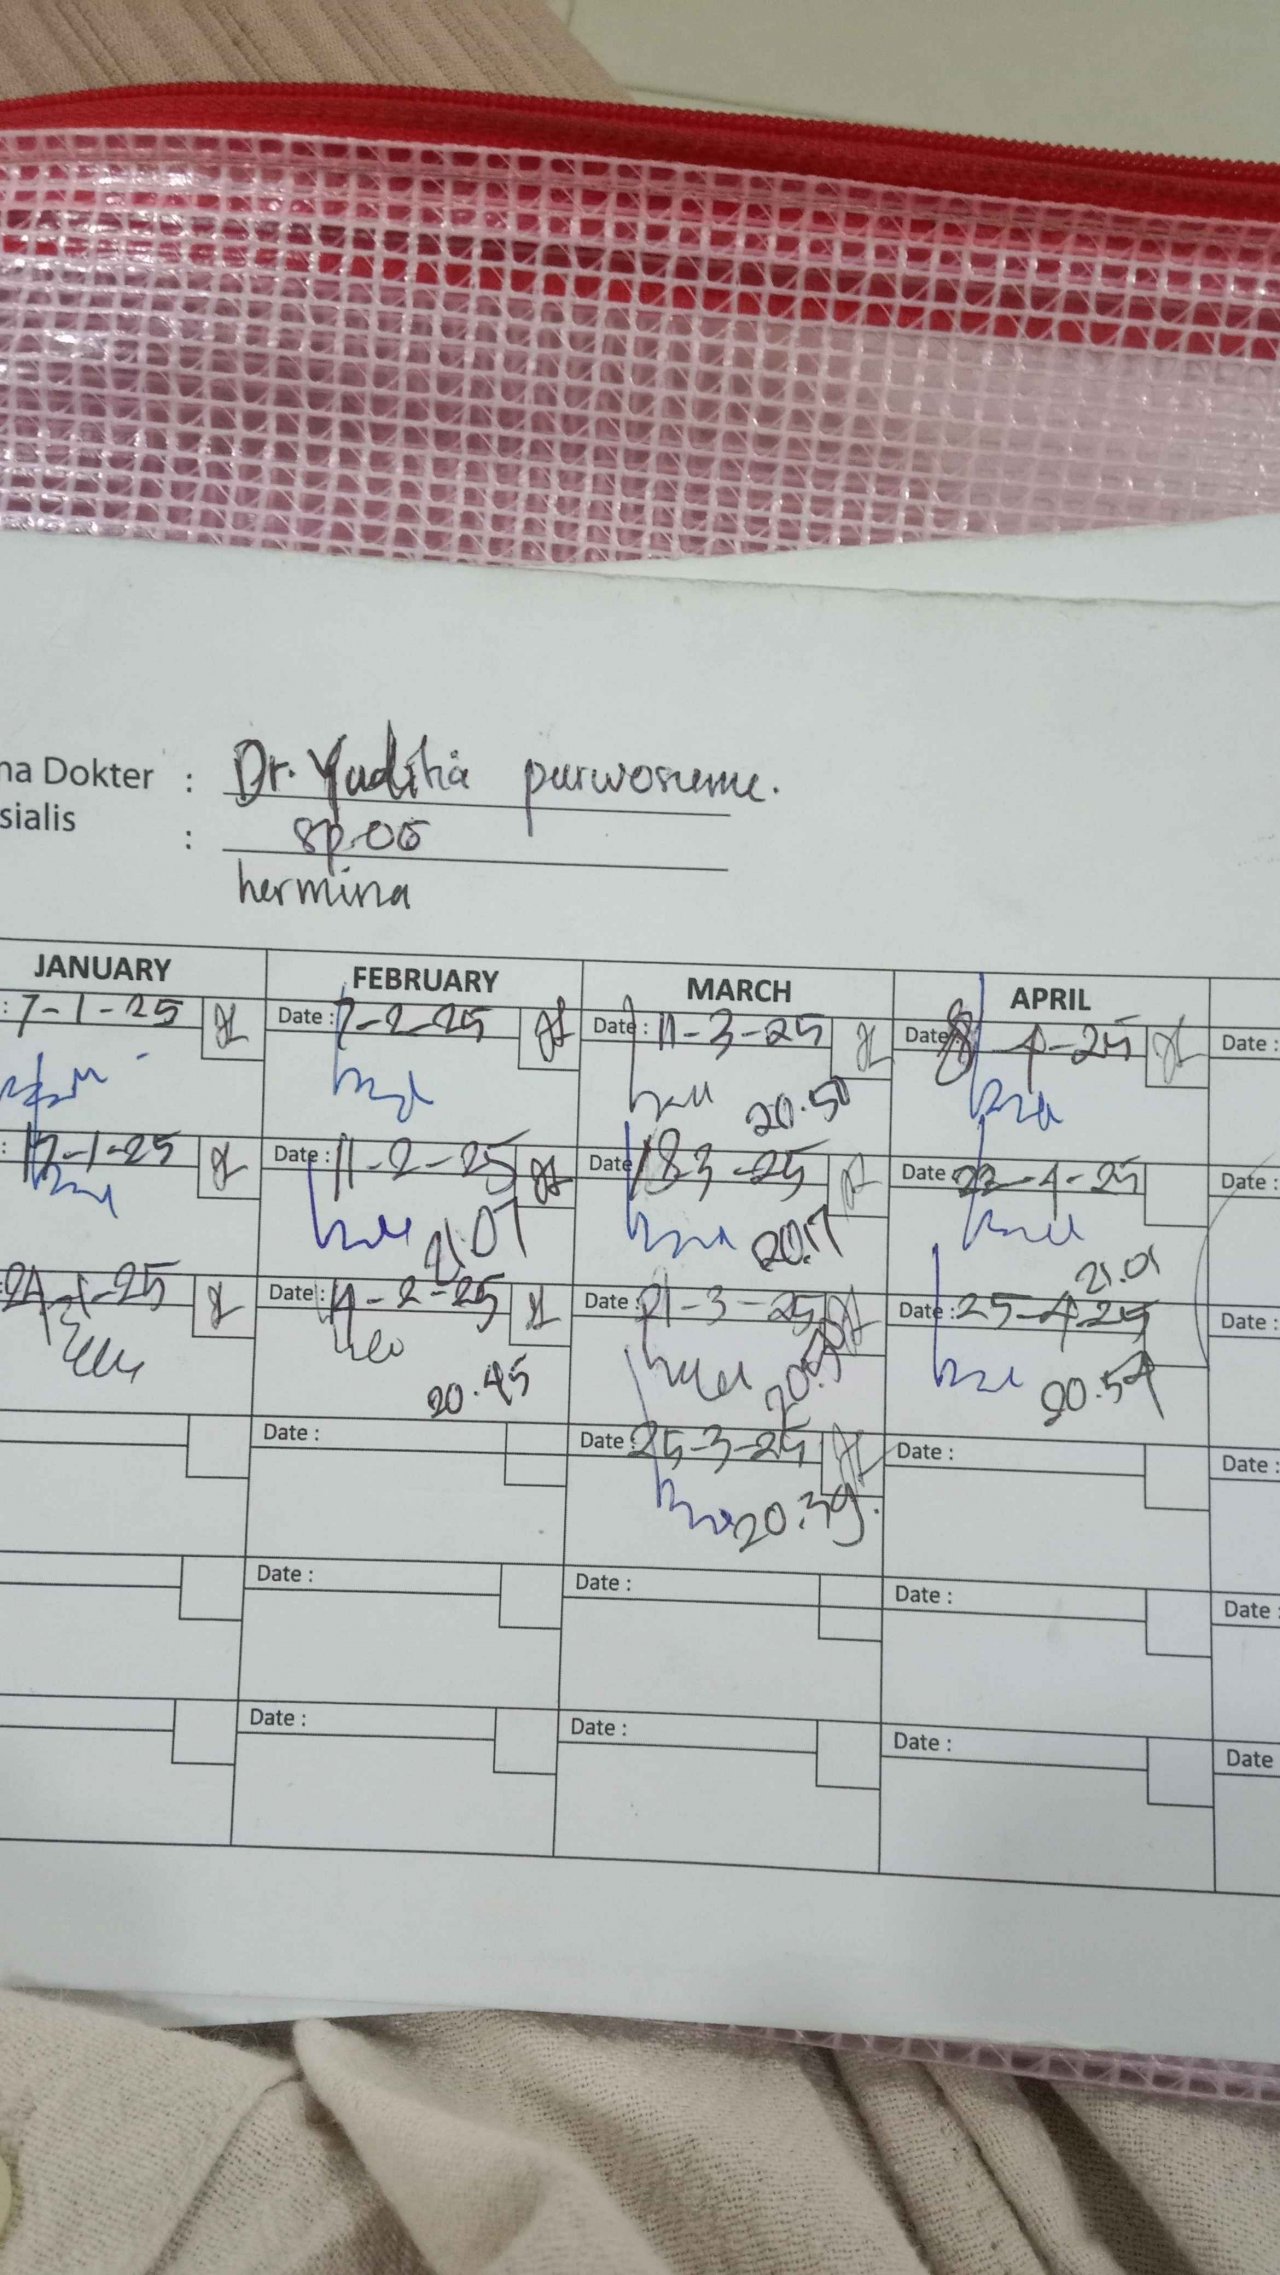 na Dokter : Dr. Yuditia purwoseme.
sialis : sp.OG
hermina
JANUARY FEBRUARY MARCH APRIL
: 7-1-25 Date : 7-2-25 Date : 11-3-25 Date : 8-4-25 Date :
20.50
: 17-1-25 Date : 11-2-25 Date 183-25 Date 22-4-25 Date :
21.07 20.17 21.01
24-1-25 Date : 14-2-25 Date : 21-3-25 Date : 25-4-25 Date :
20.45 20.50 20.54
Date : Date : 25-3-25 Date : Date :
20.39.
Date : Date : Date : Date :
Date : Date : Date : Date